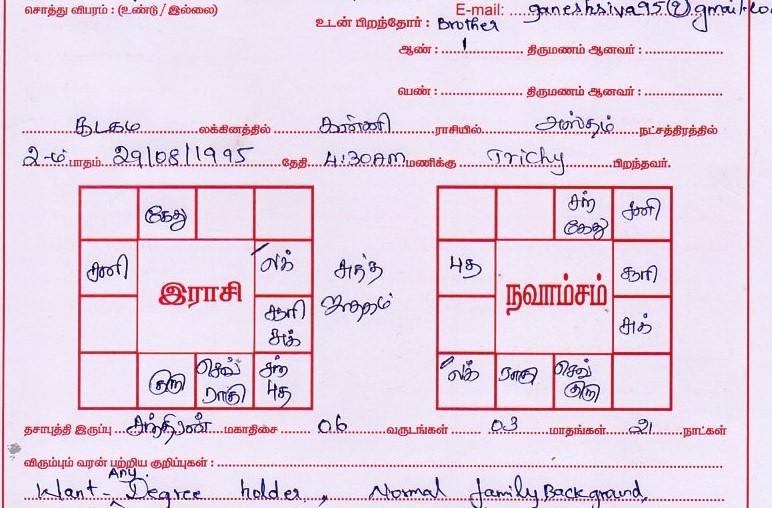 சொத்து விபரம் : (உண்டு / இல்லை)
E-mail: ganeshsiva95@gmail.co
உடன் பிறந்தோர் : Brother
ஆண் : 1 திருமணம் ஆனவர் :
பெண் : திருமணம் ஆனவர் :
கடகம் லக்கினத்தில் கன்னி ராசியில் அஸ்தம் நட்சத்திரத்தில்
2-ம் பாதம் 29/08/1995 தேதி 4:30AM மணிக்கு Trichy பிறந்தவர்.
கேது
சனி லக்
இராசி
சூரி
சுக்
குரு செவ் ராகு சந் புத
சந் கேது சனி
புத சூரி
நவாம்சம்
சுக்
லக் ராகு செவ் குரு
தசாபுத்தி இருப்பு சந்திரன் மகாதிசை 06 வருடங்கள் 03 மாதங்கள் 21 நாட்கள்
விரும்பும் வரன் பற்றிய குறிப்புகள் :
Want - Any Degree holder, Normal family Background,